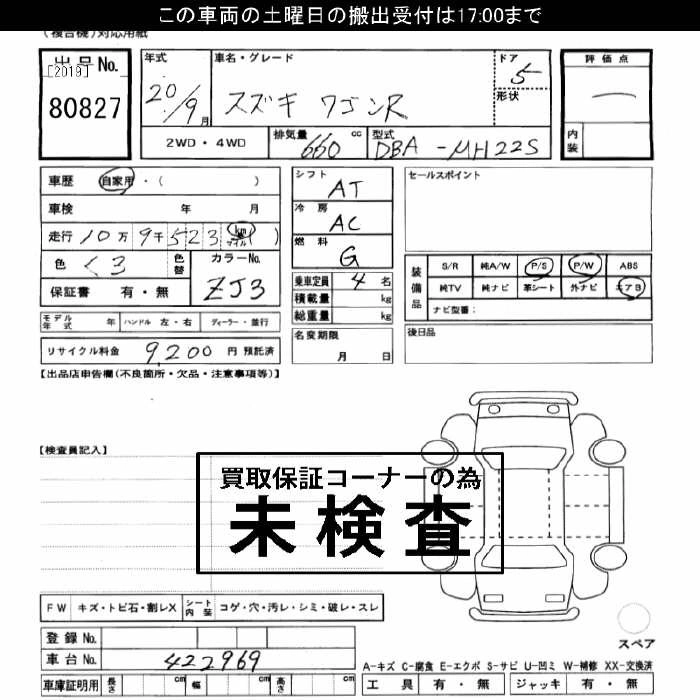 この車両の土曜日の搬出受付は17:00まで
(複合機)対応用紙
出品No.
[2019]
80827
年式 車名・グレード ドア
20/9月 スズキ ワゴンR 5
形状
評価点
内装
2WD・4WD 排気量 660 cc 型式 DBA-MH22S
車歴 自家用・( )
車検 年 月
走行 10万9千523 km マイル ( )
色 くろ 色替 カラーNo. ZJ3
保証書 有・無
シフト AT
冷房 AC
燃料 G
乗車定員 4 名
積載量 kg
総重量 kg
セールスポイント
装備品 S/R 純A/W P/S P/W ABS
純TV 純ナビ 革シート 外ナビ エアB
ナビ型番:
モデル年式 年 ハンドル 左・右 ディーラー・並行
リサイクル料金 9,200 円 預託済
名変期限 月 日
後日品
【出品店申告欄(不良箇所・欠品・注意事項等)】
【検査員記入】
買取保証コーナーの為
未検査
FW キズ・トビ石・割レX シート内装 コゲ・穴・汚レ・シミ・破レ・スレ
登録No.
車台No. 422969
車庫証明用 長さ cm 幅 cm 高さ cm
スペア
A-キズ C-腐食 E-エクボ S-サビ U-凹ミ W-補修 XX-交換済
工具 有・無 ジャッキ 有・無